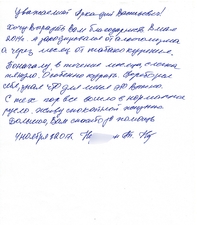 Уважаемый Аркадий Васильевич!
Хочу выразить Вам благодарность. В мае
2014 я закодировался от алкоголизма
а через месяц от табакокурения.
Вначале, в течение месяца, сложно
и плохо. Особенно курить.
себя, знал для меня это важно.
С тех пор все вошло в нормальное
русло, живу спокойной жизнью
Большое, Вам спасибо за помощь
4 ноября 2017.